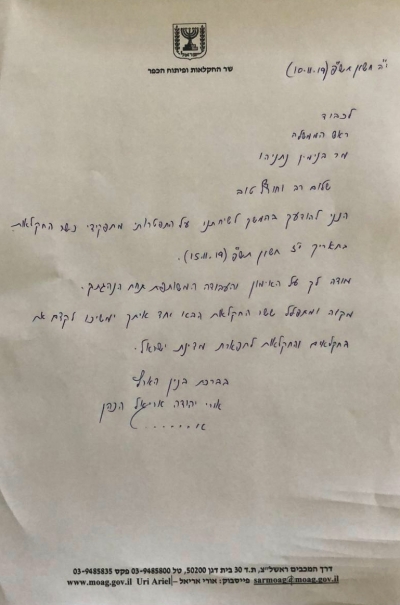 ישראל
שר החקלאות ופיתוח הכפר
י"ב חשון תש"פ (10.11.19)
לכבוד
ראש הממשלה
מר בנימין נתניהו
שלום רב וחודש טוב
הנני להודיעך בהמשך לשיחתנו על התפטרותי מתפקידי כשר החקלאות
בתאריך י"ז חשון תש"פ (15.11.19).
מודה לך על האימון והעבודה המשותפת תחת הנהגתך.
מקוה ומתפלל ששר החקלאות הבא יחד איתך ימשיכו לקדם את
החקלאים והחקלאות לתפארת מדינת ישראל.
בברכת בנין הארץ
אורי יהודה אריאל הכהן
דרך המכבים ראשל"צ, ת.ד 30 בית דגן 50200, טל 03-9485800 פקס 03-9485835
www.moag.gov.il Uri Ariel – פייסבוק: אורי אריאל sarmoag@moag.gov.il